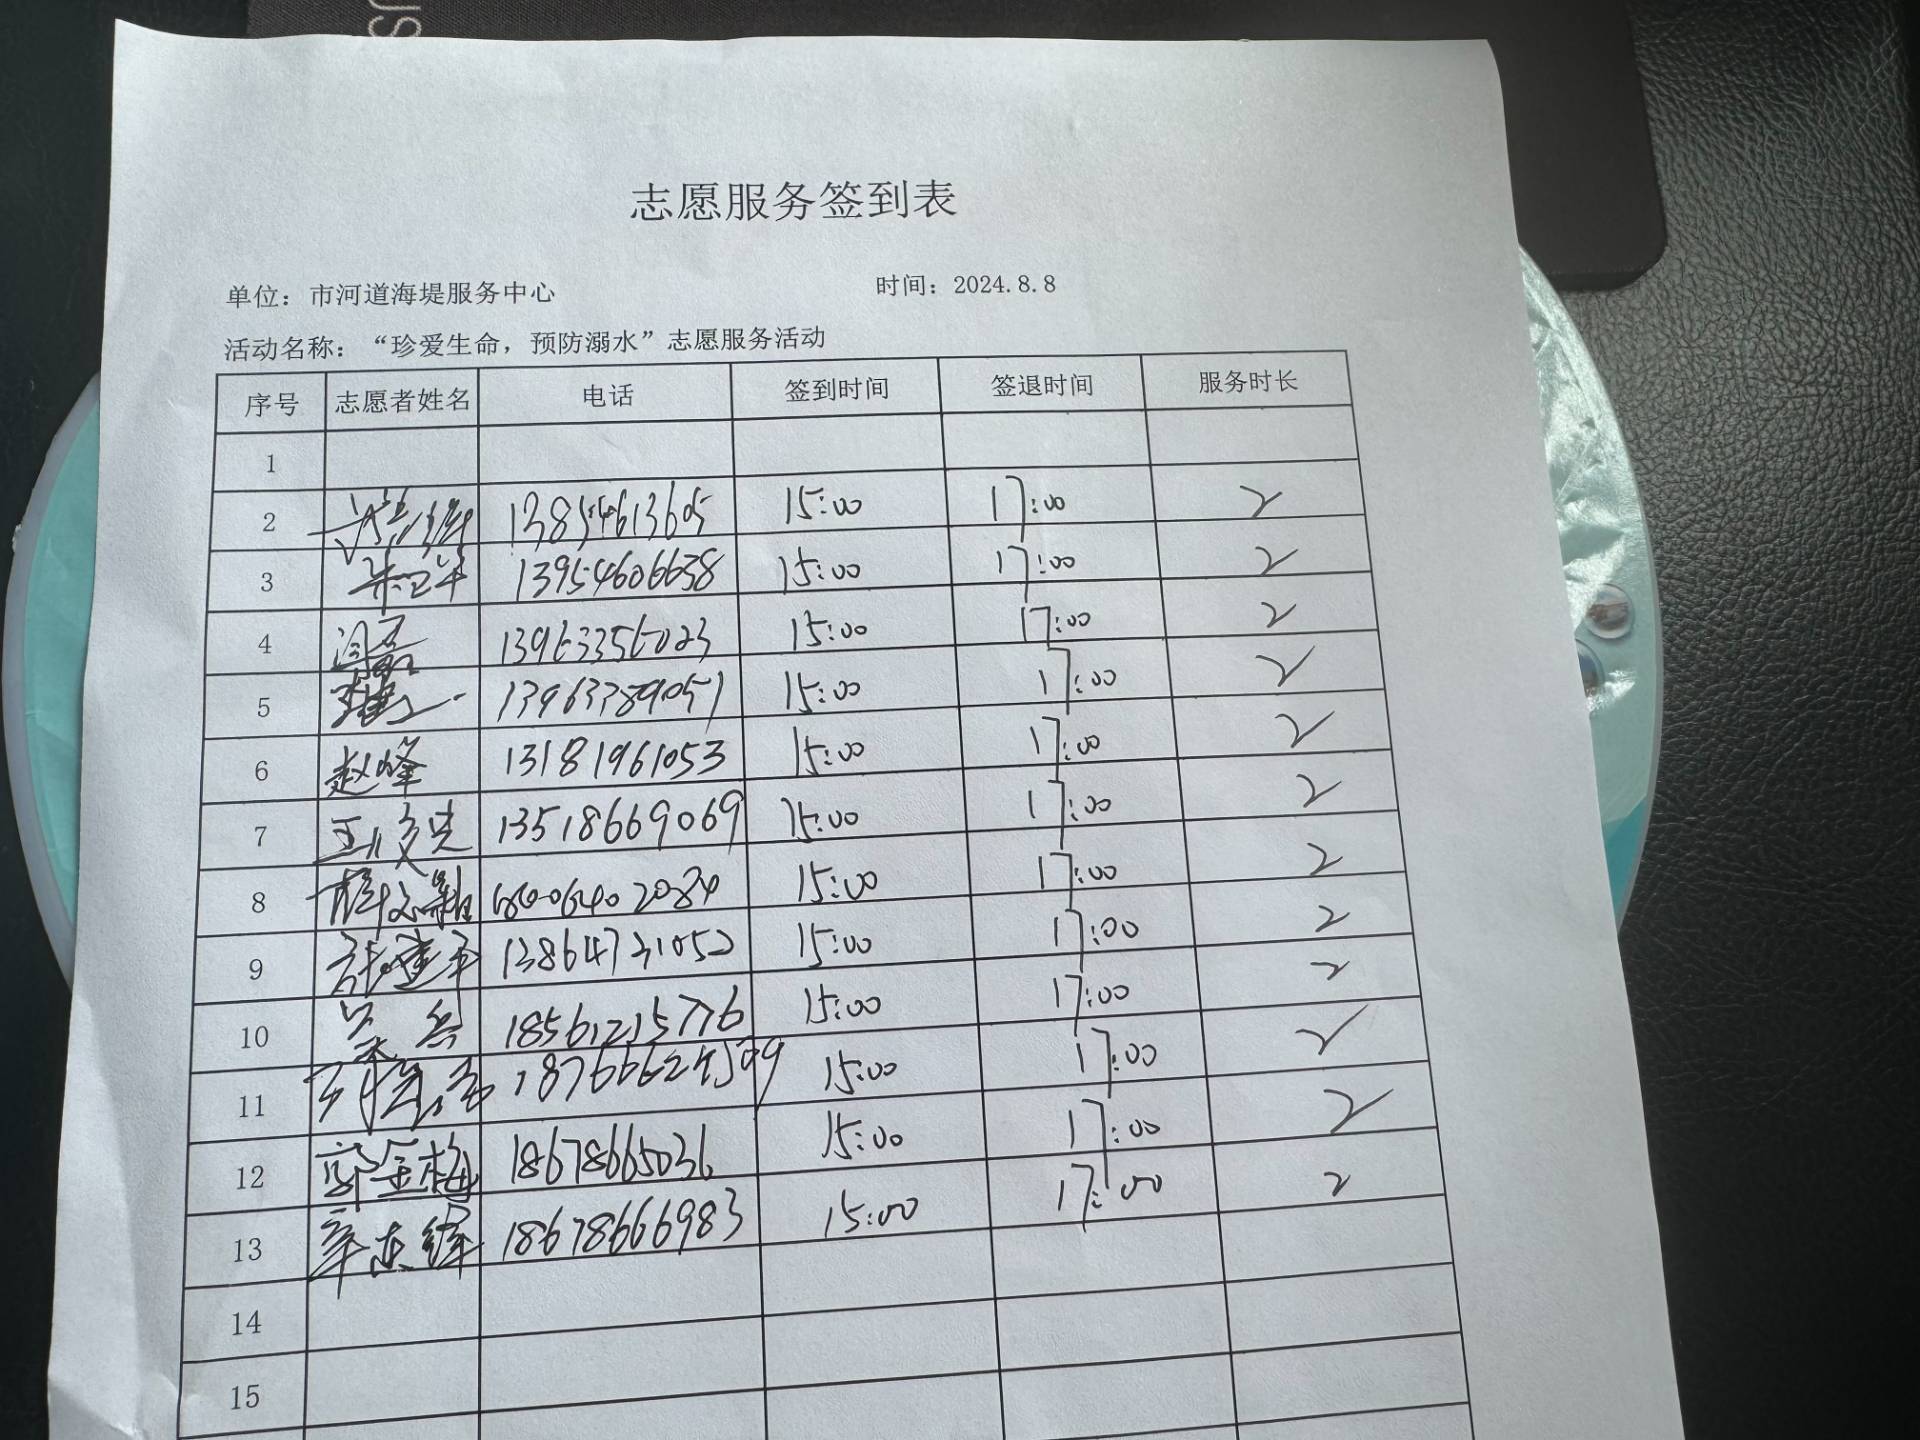 US
志愿服务签到表
单位：市河道海堤服务中心 时间：2024.8.8
活动名称：“珍爱生命，预防溺水”志愿服务活动
序号 志愿者姓名 电话 签到时间 签退时间 服务时长
1
2 13854613605 15:00 17:00 2
3 朱卫华 13954606638 15:00 17:00 2
4 15:00 17:00 2
5 15:00 17:00 2
6 赵峰 13181961053 15:00 17:00 2
7 王俊忠 13518669069 15:00 17:00 2
8 15:00 17:00 2
9 张建平 13864731052 15:00 17:00 2
10 吴兵 18561215776 15:00 17:00 2
11 15:00 17:00 2
12 郭金梅 18678665036 15:00 17:00 2
13 辛东绪 18678666983 15:00 17:00 2
14
15